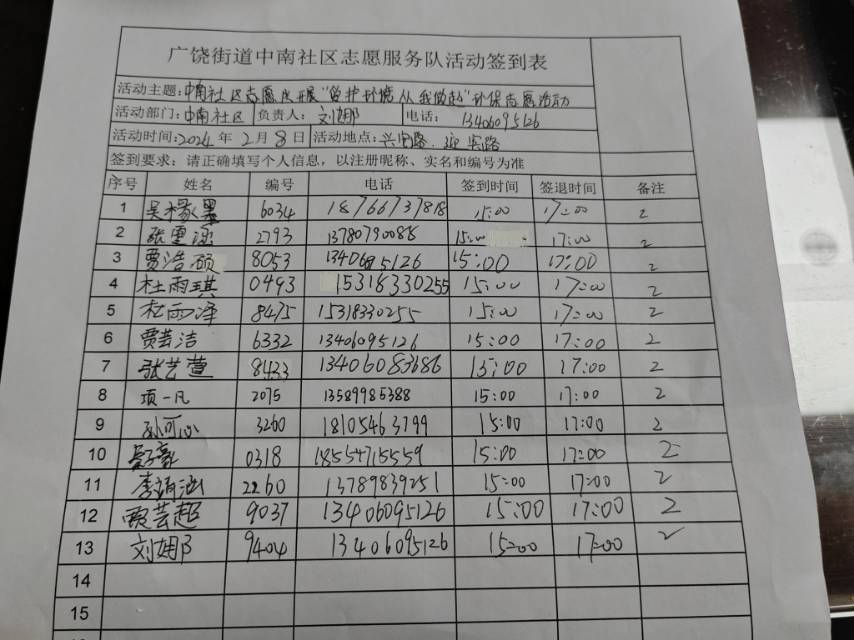 广饶街道中南社区志愿服务队活动签到表
活动主题:中南社区志愿队开展"爱护环境 从我做起"环保志愿活动
活动部门:中南社区 负责人:刘娜 电话: 13406095126
活动时间:2024 年 2月8日 活动地点:兴安路、迎宾路
签到要求:请正确填写个人信息,以注册昵称、实名和编号为准
序号 姓名 编号 电话 签到时间 签退时间 备注
1 6034 18766737818 15:00 17:00 2
2 2793 13780790088 15:00 17:00 2
3 贾浩硕 8053 13406095126 15:00 17:00 2
4 杜雨琪 0493 15318330255 15:00 17:00 2
5 杜雨泽 8475 15318330255 15:00 17:00 2
6 贾芸洁 6332 13406095126 15:00 17:00 2
7 张艺萱 8433 13406083686 15:00 17:00 2
8 项一凡 2075 13589985388 15:00 17:00 2
9 孙可心 3260 18105463799 15:00 17:00 2
10 0318 18554715559 15:00 17:00 2
11 李 涵 2260 13789839251 15:00 17:00 2
12 贾芸超 9037 13406095126 15:00 17:00 2
13 刘娜 9404 13406095126 15:00 17:00 2
14
15